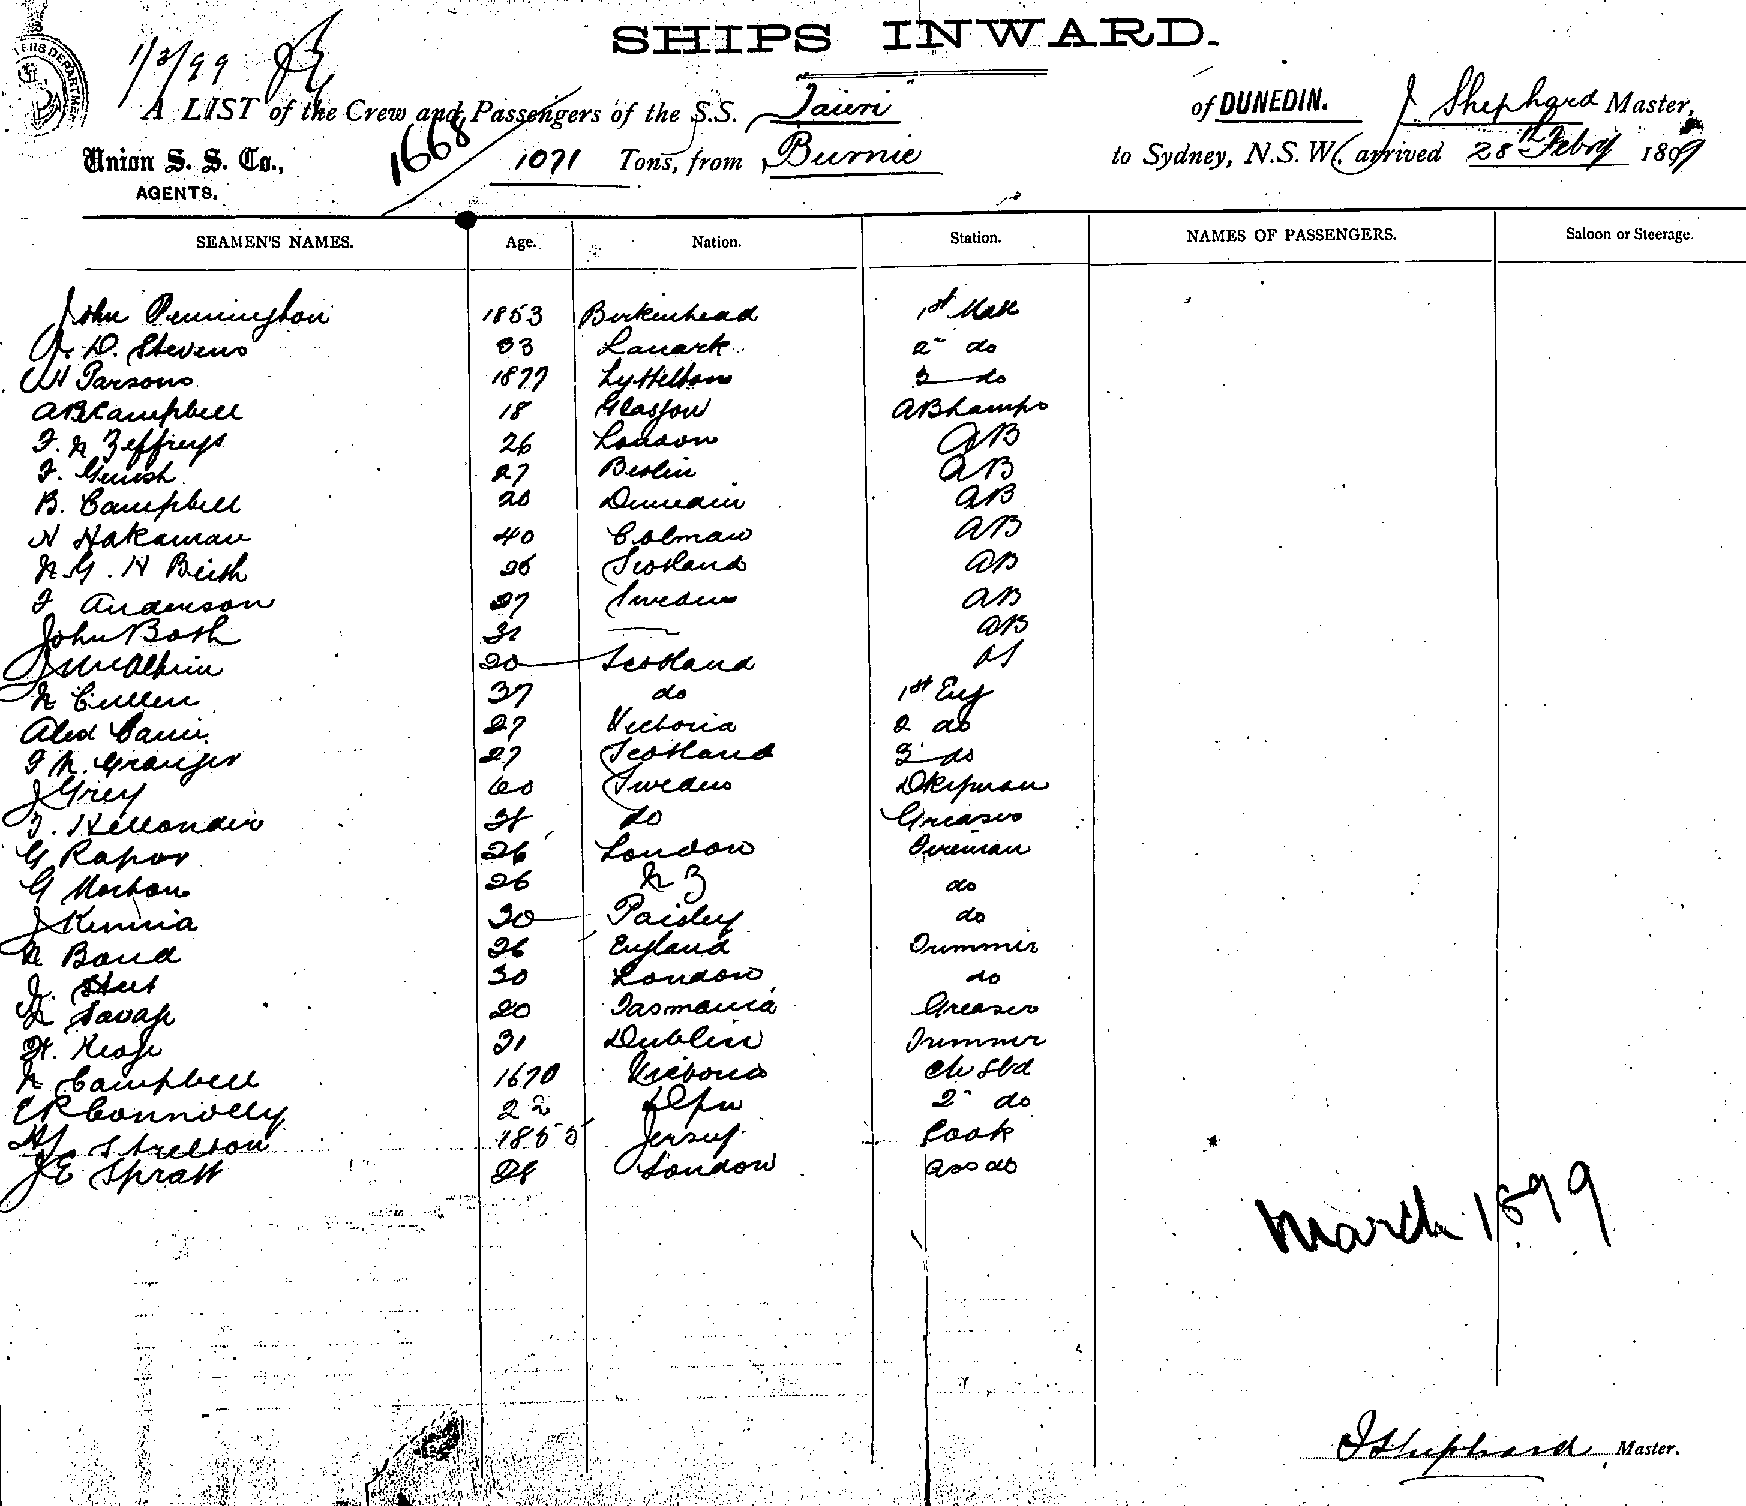 SHIPS INWARD.
1/3/99
A LIST of the Crew and Passengers of the S.S. Taieri of DUNEDIN. J Shephard Master,
1668
Union S. S. Co., 1071 Tons, from Burnie to Sydney, N.S.W., arrived 28th Febry 1899
AGENTS.
SEAMEN'S NAMES. Age. Nation. Station. NAMES OF PASSENGERS. Saloon or Steerage.
John Pennington 1853 Birkinhead 1st Mate
D. Stevens 33 Lanark 2 do
W Parsons 1877 Lyttelton 3 do
AB Campbell 18 Glasgow AB Lamps
F. W Jeffreys 26 London AB
F. 27 Berlin AB
B. Campbell 20 Dunedin AB
N Hakaman 40 Colmar AB
W. G. H Birth 26 Scotland AB
F Anderson 27 Sweden AB
John Bath 31 — AB
J McAlpin 20 Scotland OS
W Cullen 37 do 1st Eng
Alex 27 Victoria 2 do
F W. Granger 27 Scotland 3 do
J Grey 60 Sweden Dkeyman
F. Hellander 38 do Greaser
G Raper 26 London Fireman
G Morton 26 N Z do
J Kennia 30 Paisley do
W Bond 26 England Trimmer
J. 30 London do
W Savage 20 Tasmania Greaser
H. Keogh 31 Dublin Trimmer
W Campbell 1870 Victoria Ch Std
C R Connolly 22 2 do
Strelton 1855 Jersey Cook
J E Spratt 28 London Ass do
March 1899
J Shephard Master.